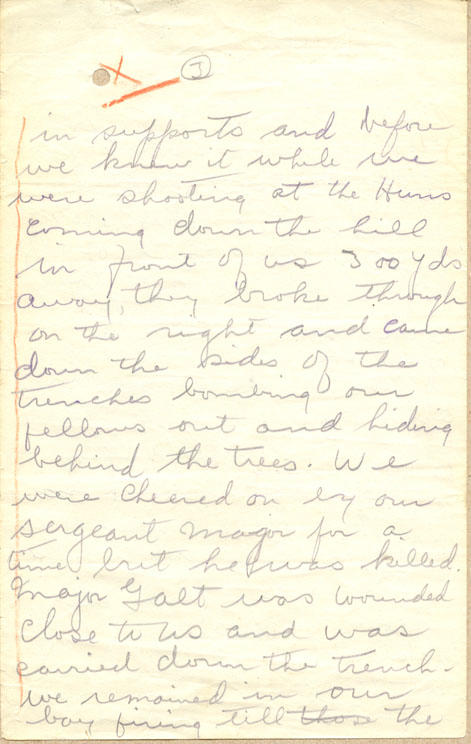 3
in supports and before
we knew it while we
were shooting at the Huns
coming down the hill
in front of us 300 yds
away, they broke through
on the right and came
down the sides of the
trenches bombing our
fellows out and hiding
behind the trees. We
were cheered on by our
sergeant major for a
time but he was killed.
Major Galt was wounded
close to us and was
carried down the trench-
we remained in our
bay firing till those the